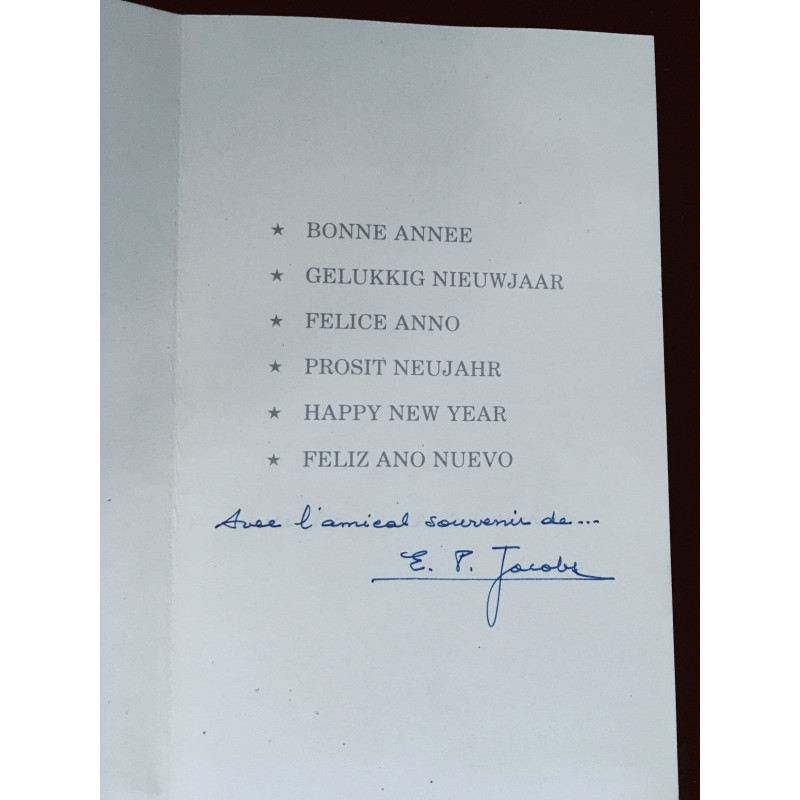 ★ BONNE ANNEE
★ GELUKKIG NIEUWJAAR
★ FELICE ANNO
★ PROSIT NEUJAHR
★ HAPPY NEW YEAR
★ FELIZ ANO NUEVO
Avec l'amical souvenir de...
E. P. Jacobs